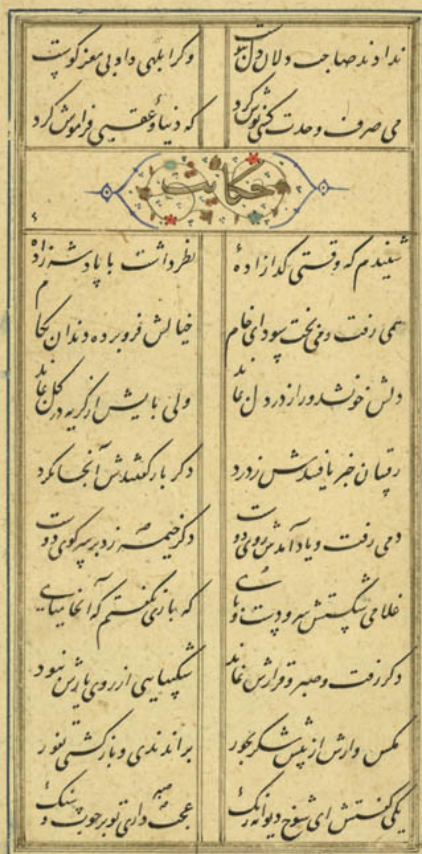 ندادند صاحبدلان دل بپوست وگر ابلهی داد بی مغز کوست
می صرف وحدت کسی نوش کرد که دنیا و عقبی فراموش کرد
حکایت
شنیدم که وقتی گدازادهٔ نظر داشت با پادشه زادهٔ
همی رفت و می پخت سودای خام خیالش فرو برده دندان بکام
دلش خون شد و راز در دل نماند ولی پایش از گریه در گل نماند
رقیبان خبر یافتندش ز درد دگر بار گفتندش آنجا مگرد
دمی رفت و یاد آمدش روی دوست دگر خیمه زد بر سر کوی دوست
غلامی شکستش سر و دست و پای که باری نگفتم که آنجا میای
دگر رفت و صبر و قرارش نماند شکیبایی از روی یارش نبود
مگس وارش از پیش شکر بجور براندندی و بازگشتی بفور
یکی گفتش ای شوخ دیوانه رنگ عجب صبر داری تو بر چوب و سنگ